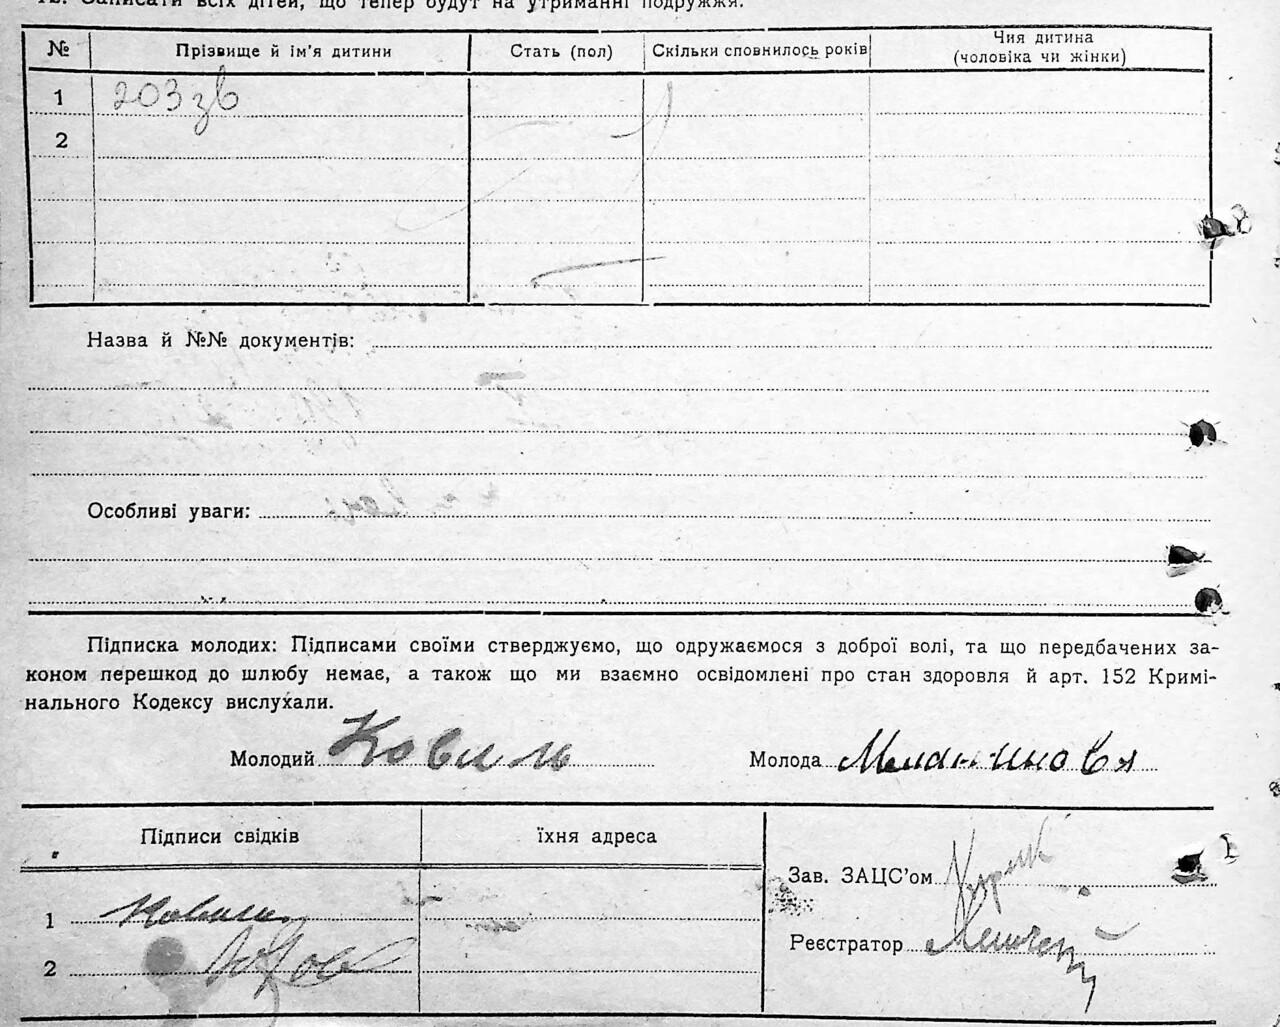 12. Записати всіх дітей, що тепер будут на утриманні подружжя.
№ Прізвище й ім'я дитини Стать (пол) Скільки сповнилось років Чия дитина (чоловіка чи жінки)
1
2
Назва й №№ документів:
Особливі уваги:
Підписка молодих: Підписами своїми стверджуємо, що одружаємося з доброї волі, та що передбачених за-
коном перешкод до шлюбу немає, а також що ми взаємно освідомлені про стан здоровля й арт. 152 Кримі-
нального Кодексу вислухали.
Молодий Ковиль Молода
Підписи свідків їхня адреса
Зав. ЗАЦС'ом
1
Реєстратор
2